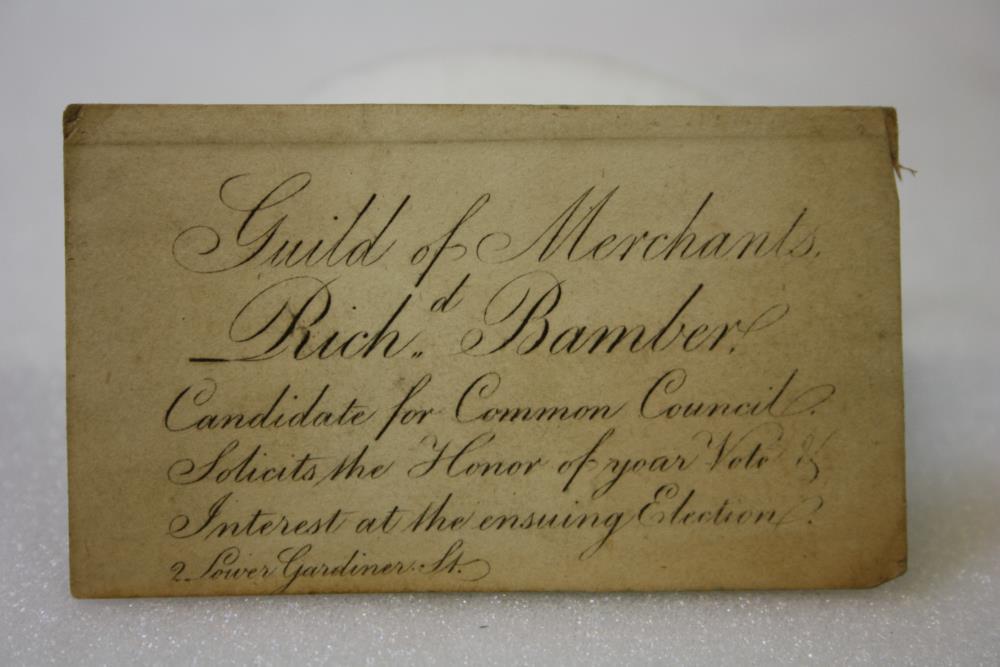 Guild of Merchants.
Rich,,d Bamber.
Candidate for Common Council.
Solicits the Honor of your Vote &
Interest at the ensuing Election.
2 Lower Gardiner St.